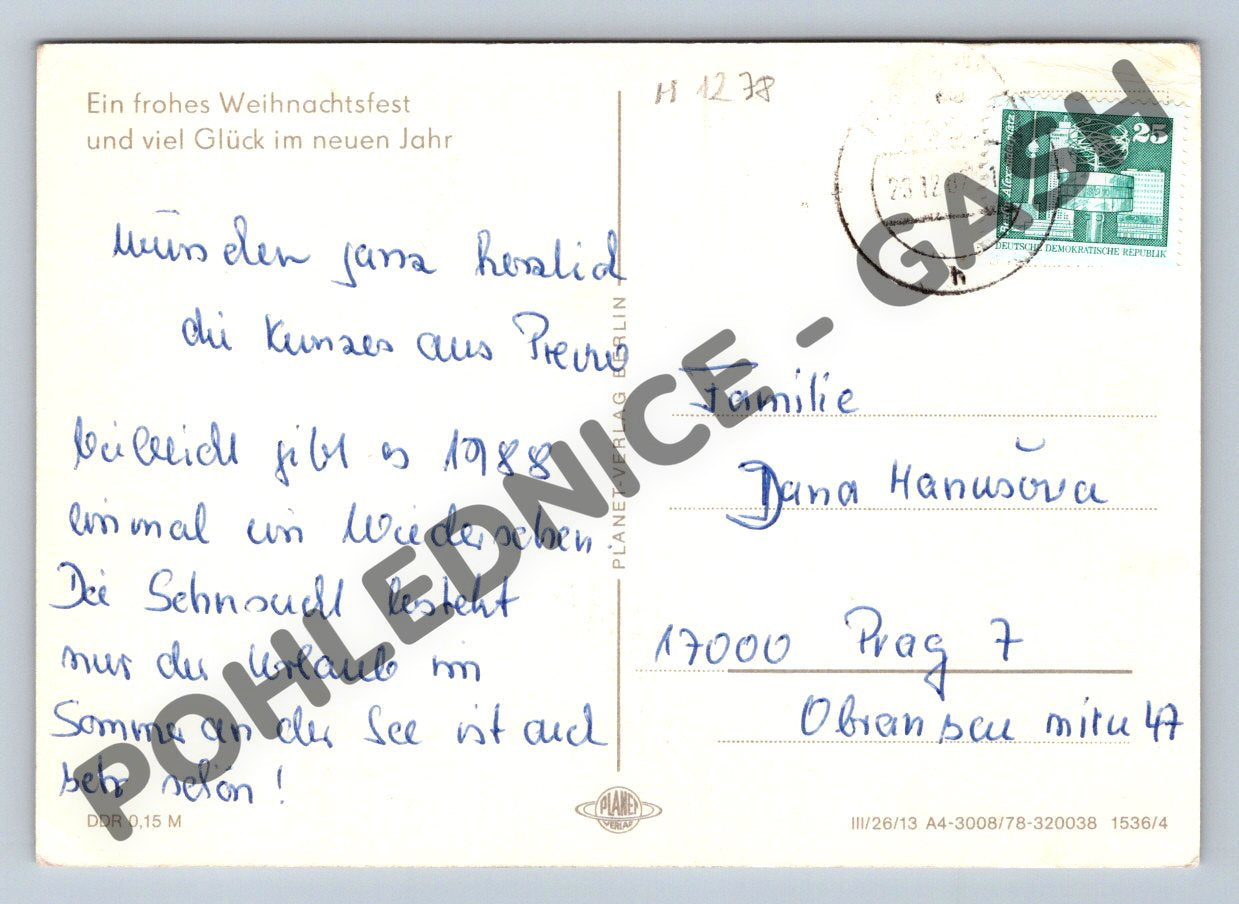 Ein frohes Weihnachtsfest
und viel Glück im neuen Jahr
wünschen ganz herzlich
die Kunzes aus
Vielleicht gibt es 1988
einmal ein Wiedersehen.
Die Sehnsucht besteht
nur der Urlaub im
Sommer an der See ist auch
sehr schön!
DDR 0,15 M
PLANET-VERLAG BERLIN
PLANET
VERLAG
H 1278
25
DEUTSCHE DEMOKRATISCHE REPUBLIK
Familie
Dana Hanušova
17000 Prag 7
miru 47
III/26/13 A4-3008/78-320038 1536/4
POHLEDNICE - GASH